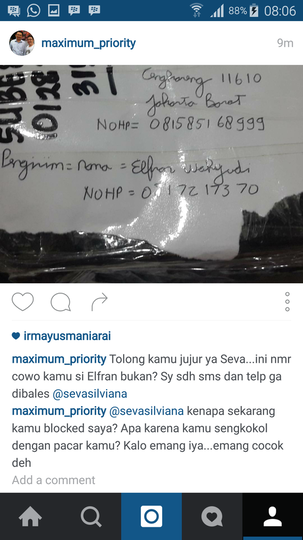 88% 08:06
maximum_priority 9m
Cengkareng 11610
Jakarta Barat
NOHP = 081585168999
Pengirim = Nama = Elfran Wahyudi
irmayusmaniarai
maximum_priority Tolong kamu jujur ya Seva...ini nmr
cowo kamu si Elfran bukan? Sy sdh sms dan telp ga
dibales @sevasilviana
maximum_priority @sevasilviana kenapa sekarang
kamu blocked saya? Apa karena kamu sengkokol
dengan pacar kamu? Kalo emang iya...emang cocok
deh
Add a comment